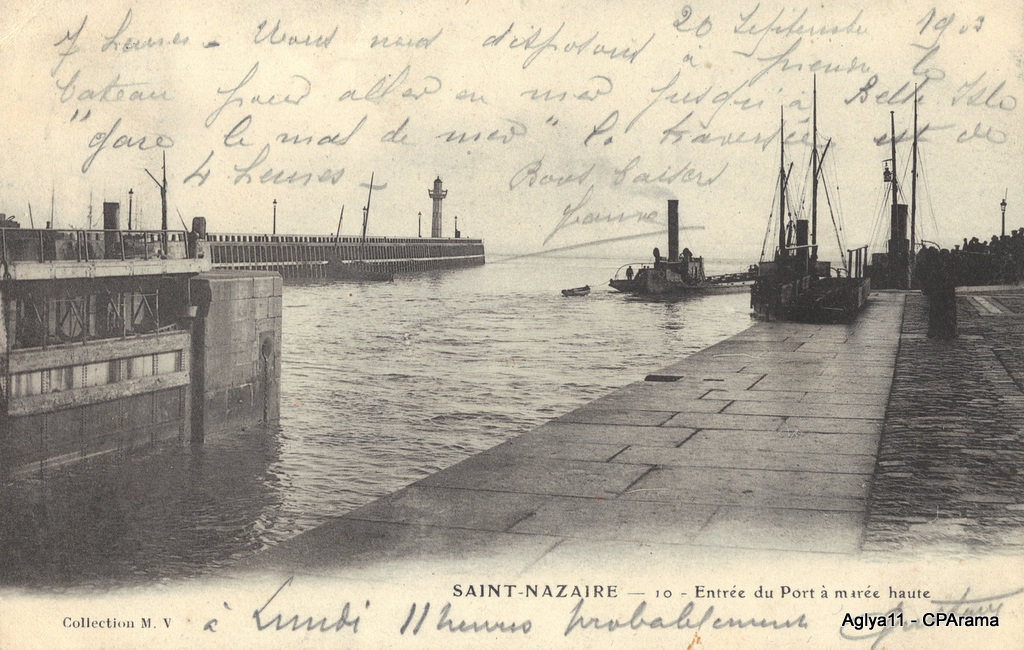 20 Septembre 1903
7 heures - Nous nous disposons à prendre le
bateau pour aller en mer jusqu'à Belle Isle
"gare le mal de mer" la traversée est de
4 heures -
Bons baisers
Jeanne
SAINT-NAZAIRE — 10 - Entrée du Port à marée haute
Collection M. V
à Lundi 11 heures probablement
Aglya11 - CPArama